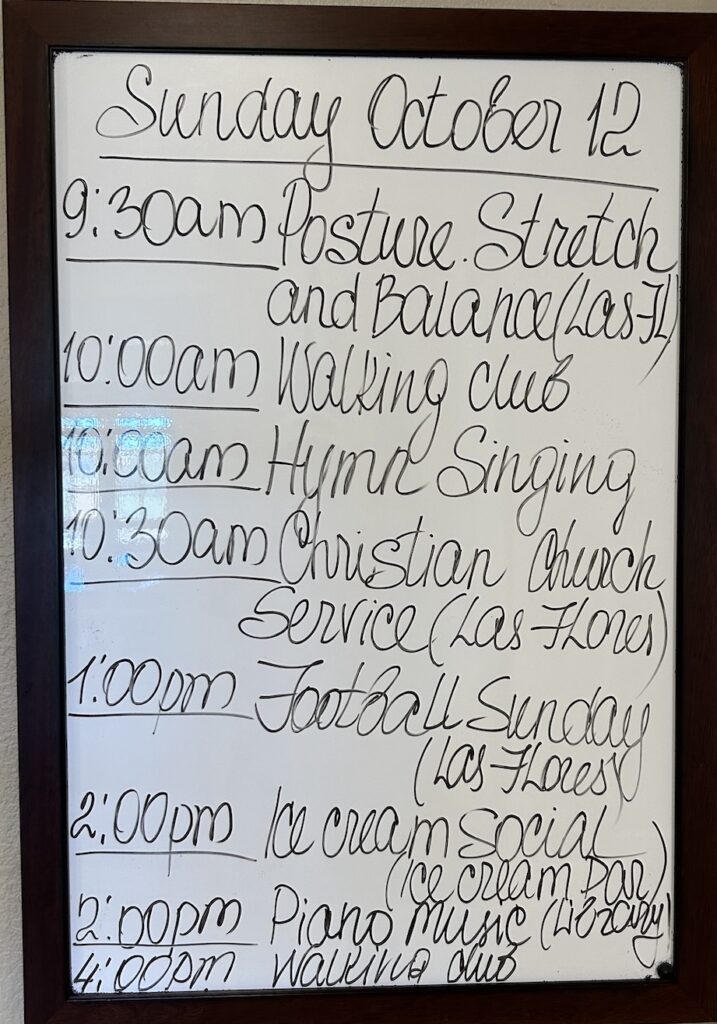 Sunday October 12
9:30am Posture. Stretch
and Balance (Las Fl)
10:00am Walking club
10:00am Hymn Singing
10:30am Christian Church
Service (Las Flores)
1:00pm Football Sunday
(Las Flores)
2:00pm Ice cream Social
(Ice cream Bar)
2:00pm Piano Music (Library)
4:00pm Walking club